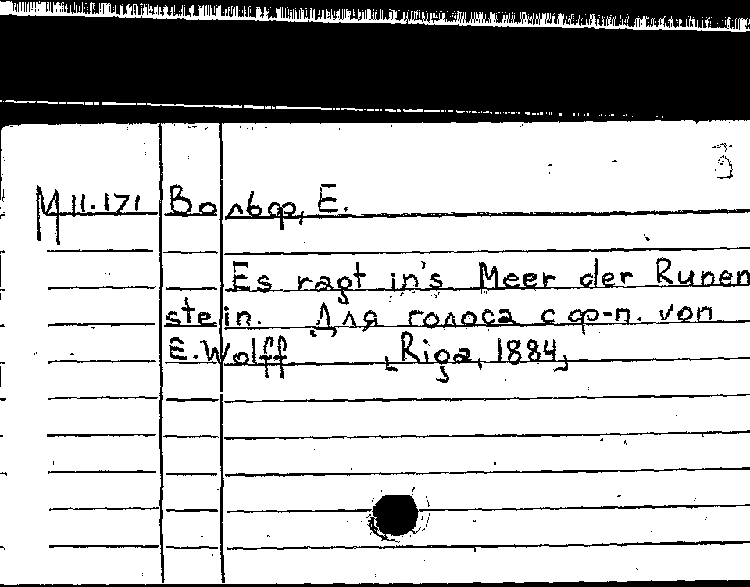 М 11.171 Вольф, Е.
Es ragt in's Meer der Runen
stein. Для голоса с ф-п. von
E. Wolff [Riga, 1884]